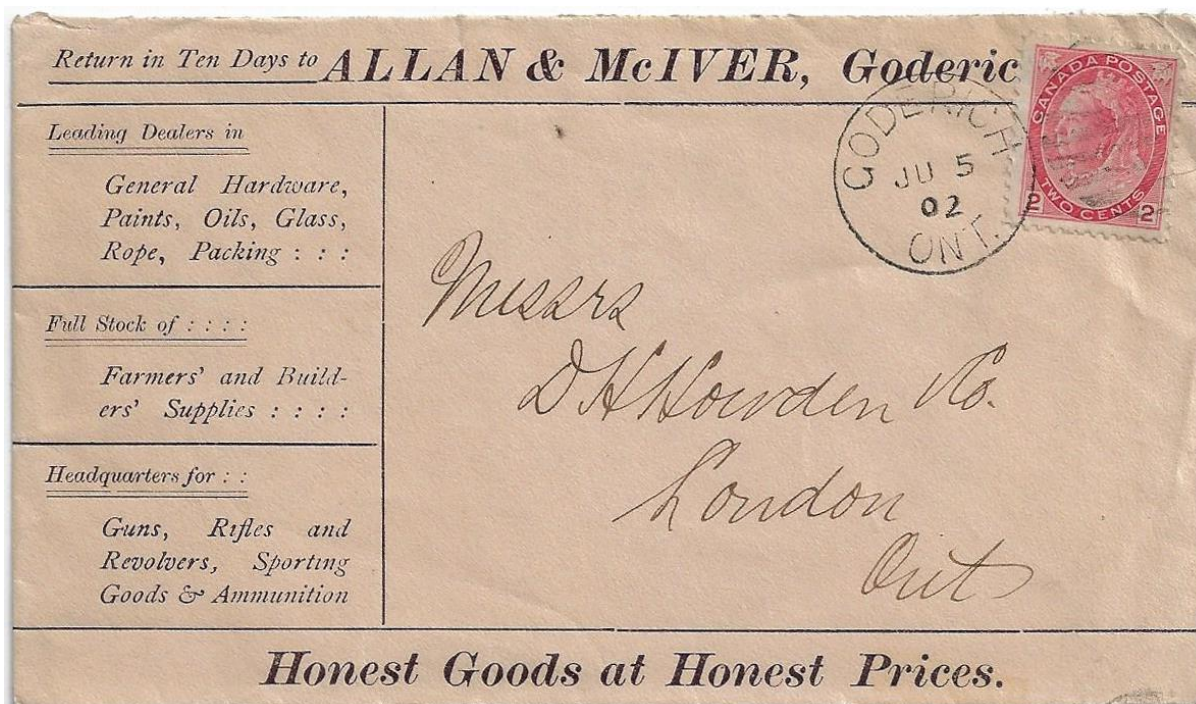 Return in Ten Days to ALLAN & McIVER, Goderic
Leading Dealers in
General Hardware,
Paints, Oils, Glass,
Rope, Packing : : :
Full Stock of : : : :
Farmers' and Build-
ers' Supplies : : : :
Headquarters for : :
Guns, Rifles and
Revolvers, Sporting
Goods & Ammunition
GODERICH
JU 5
02
ONT.
CANADA POSTAGE
TWO CENTS
2 2
Messrs
D H Howden & Co.
London
Ont
Honest Goods at Honest Prices.